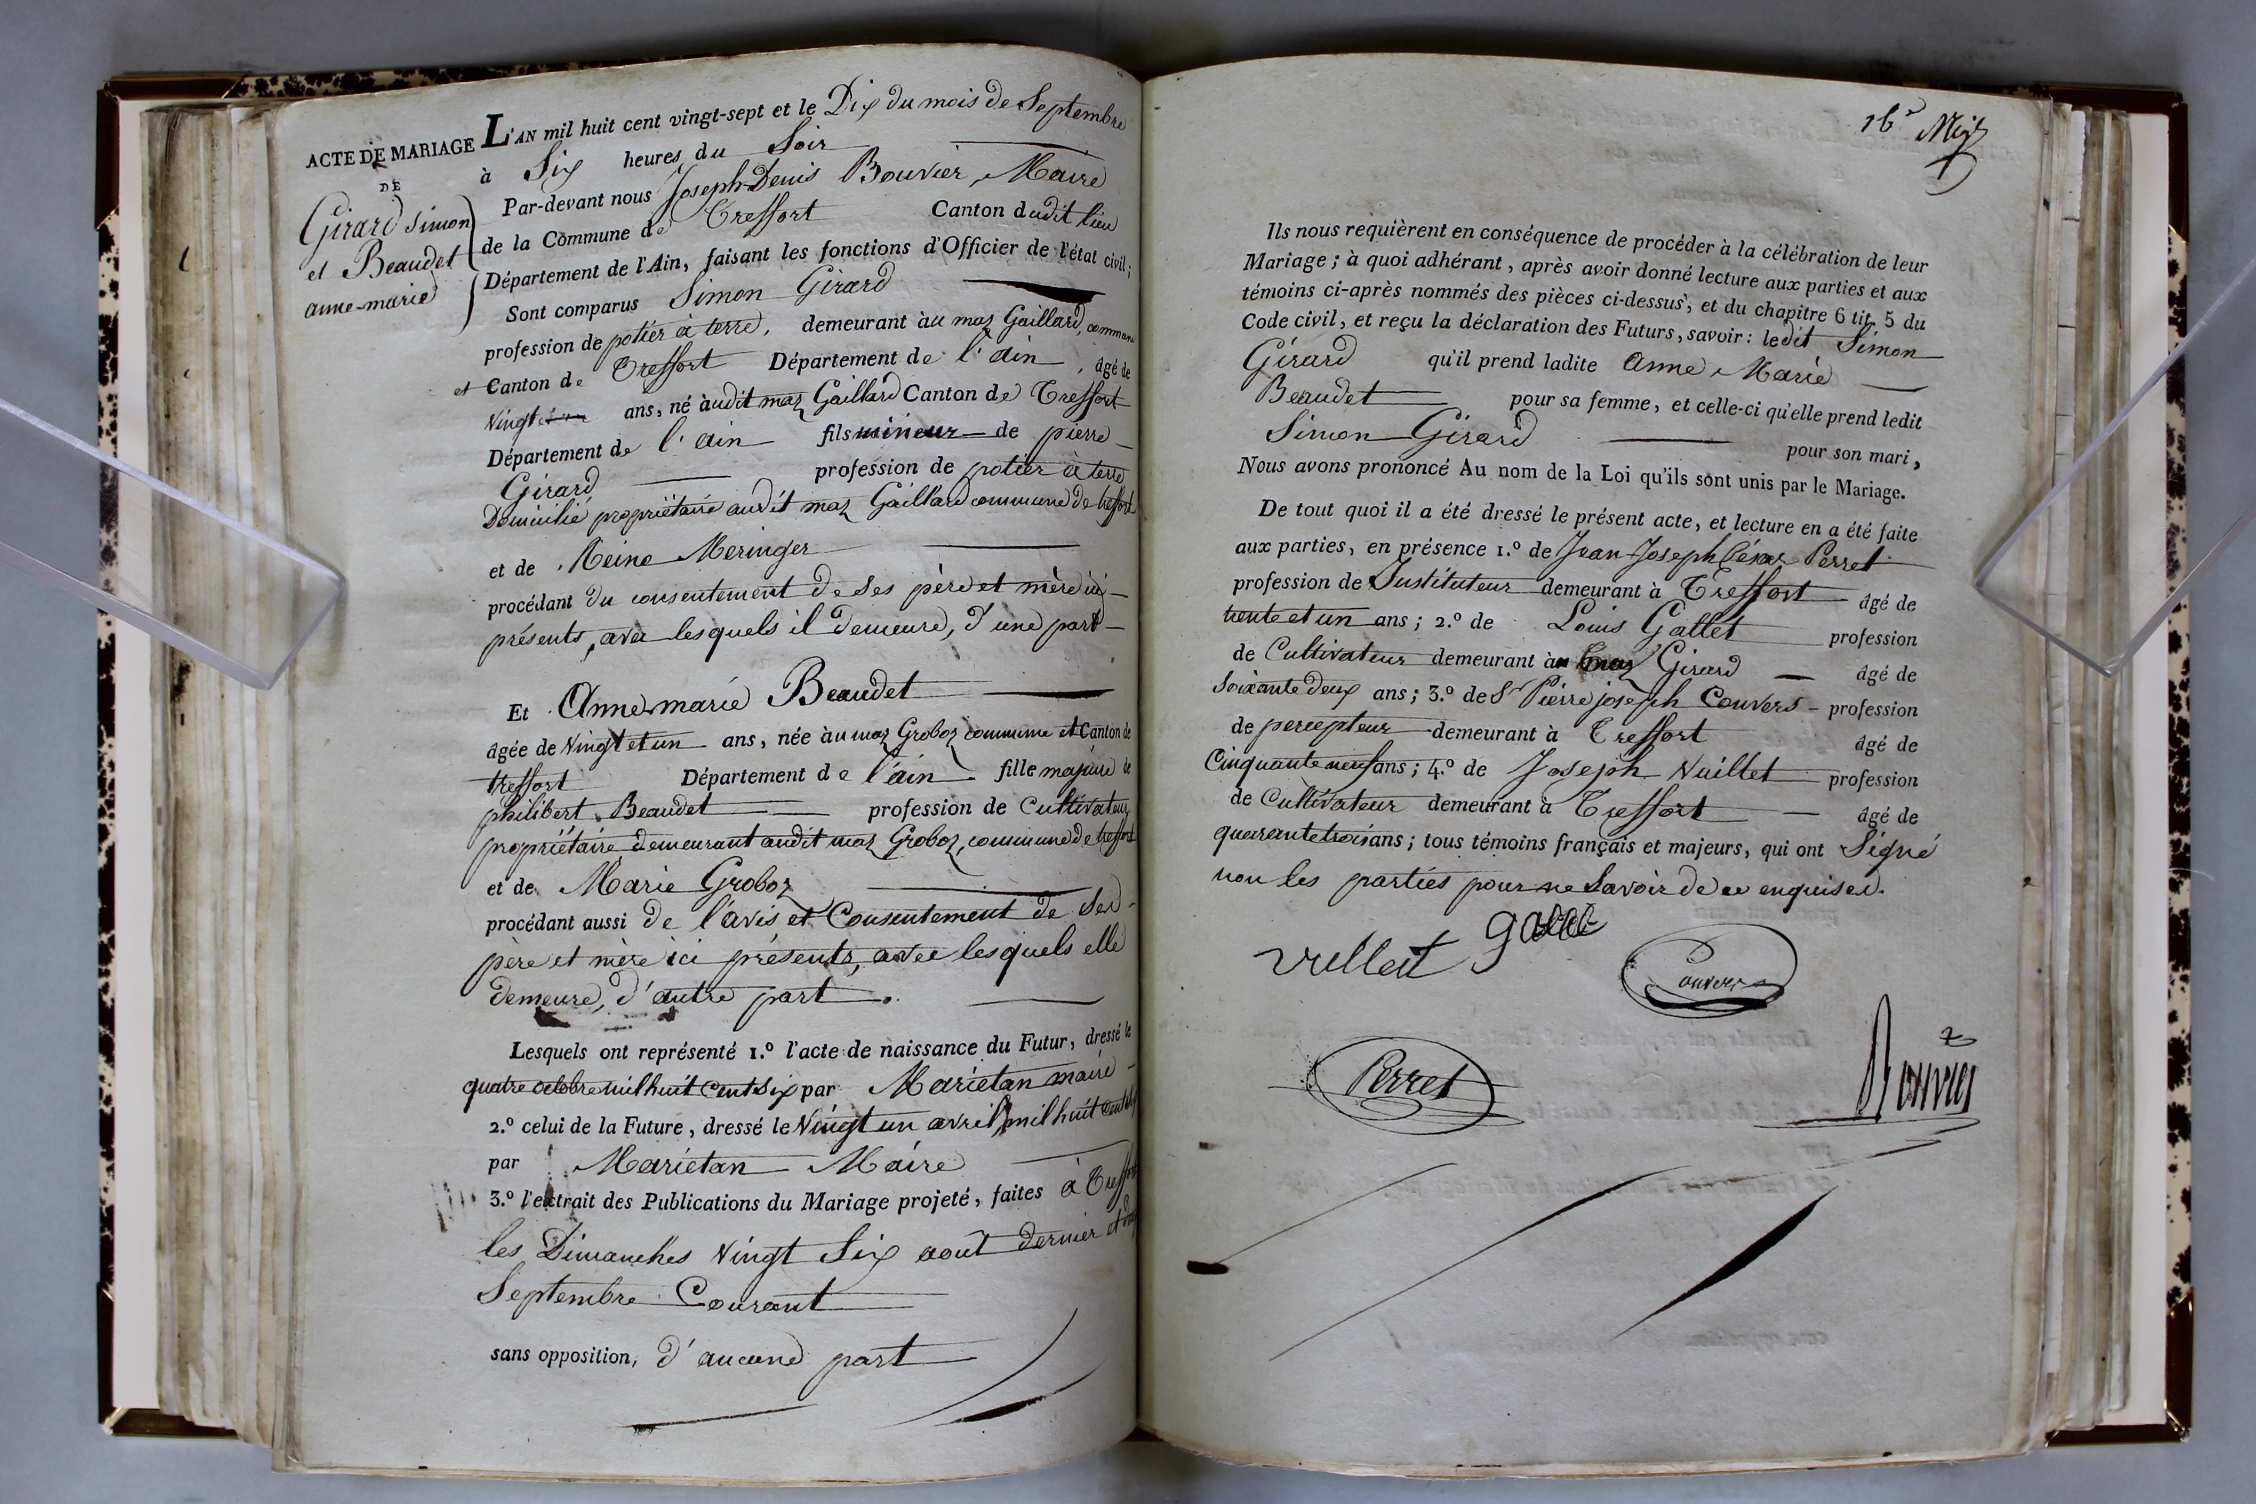 ACTE DE MARIAGE
DE
Girard Simon
et Beaudet
anne-marie
L'AN mil huit cent vingt-sept et le Dix du mois de Septembre
à Six heures du Soir
Par-devant nous Joseph-Denis Bouvier, Maire
de la Commune de Treffort Canton dudit lieu
Département de l'Ain, faisant les fonctions d'Officier de l'état civil;
Sont comparus Simon Girard
profession de potier à terre, demeurant àu maz Gaillard, commune
et Canton de Treffort Département de l'ain, âgé de
Vingt ans, né àudit maz Gaillard Canton de Treffort
Département de l'ain fils mineur de pierre
Girard profession de potier à terre
Domicilié propriétaire audit maz Gaillard commune de treffort
et de Reine Meringer
procédant du consentement de ses père et mère ici
présents, avec lesquels il demeure, d'une part
Et Anne marie Beaudet
âgée de Vingt et un ans, née àu maz Groboz commune et Canton de
treffort Département de l'ain fille majeure de
philibert Beaudet profession de Cultivateur
propriétaire demeurant audit maz Groboz, commune de treffort
et de Marie Groboz
procédant aussi de l'avis et Consentement de ses
père et mère ici présents, avec lesquels elle
demeure, d'autre part.
Lesquels ont représenté 1.º l'acte de naissance du Futur, dressé le
quatre octobre mil huit Cent Six par Marietan maire
2.º celui de la Future, dressé le Vingt un avril mil huit cent
par Marietan Maire
3.º l'extrait des Publications du Mariage projeté, faites à Treffort
les Dimanches Vingt Six aout dernier et deux
Septembre Courant
sans opposition, d'aucune part
16.e
Ils nous requièrent en conséquence de procéder à la célébration de leur
Mariage; à quoi adhérant, après avoir donné lecture aux parties et aux
témoins ci-après nommés des pièces ci-dessus, et du chapitre 6 tit. 5 du
Code civil, et reçu la déclaration des Futurs, savoir: ledit Simon
Girard qu'il prend ladite Anne Marie
Beaudet pour sa femme, et celle-ci qu'elle prend ledit
Simon Girard pour son mari,
Nous avons prononcé Au nom de la Loi qu'ils sont unis par le Mariage.
De tout quoi il a été dressé le présent acte, et lecture en a été faite
aux parties, en présence 1.º de Jean Joseph César Perret
profession de Instituteur demeurant à Treffort âgé de
trente et un ans; 2.º de Louis Gallet profession
de Cultivateur demeurant àu maz Girard âgé de
Soixante deux ans; 3.º de Sr Pierre joseph Couvers profession
de percepteur demeurant à Treffort âgé de
Cinquante neuf ans; 4.º de Joseph Vuillet profession
de Cultivateur demeurant à Treffort âgé de
quarante trois ans; tous témoins français et majeurs, qui ont Signé
non les parties pour ne Savoir de ce enquises.
vullet
Couvers
Perret
Bouvier